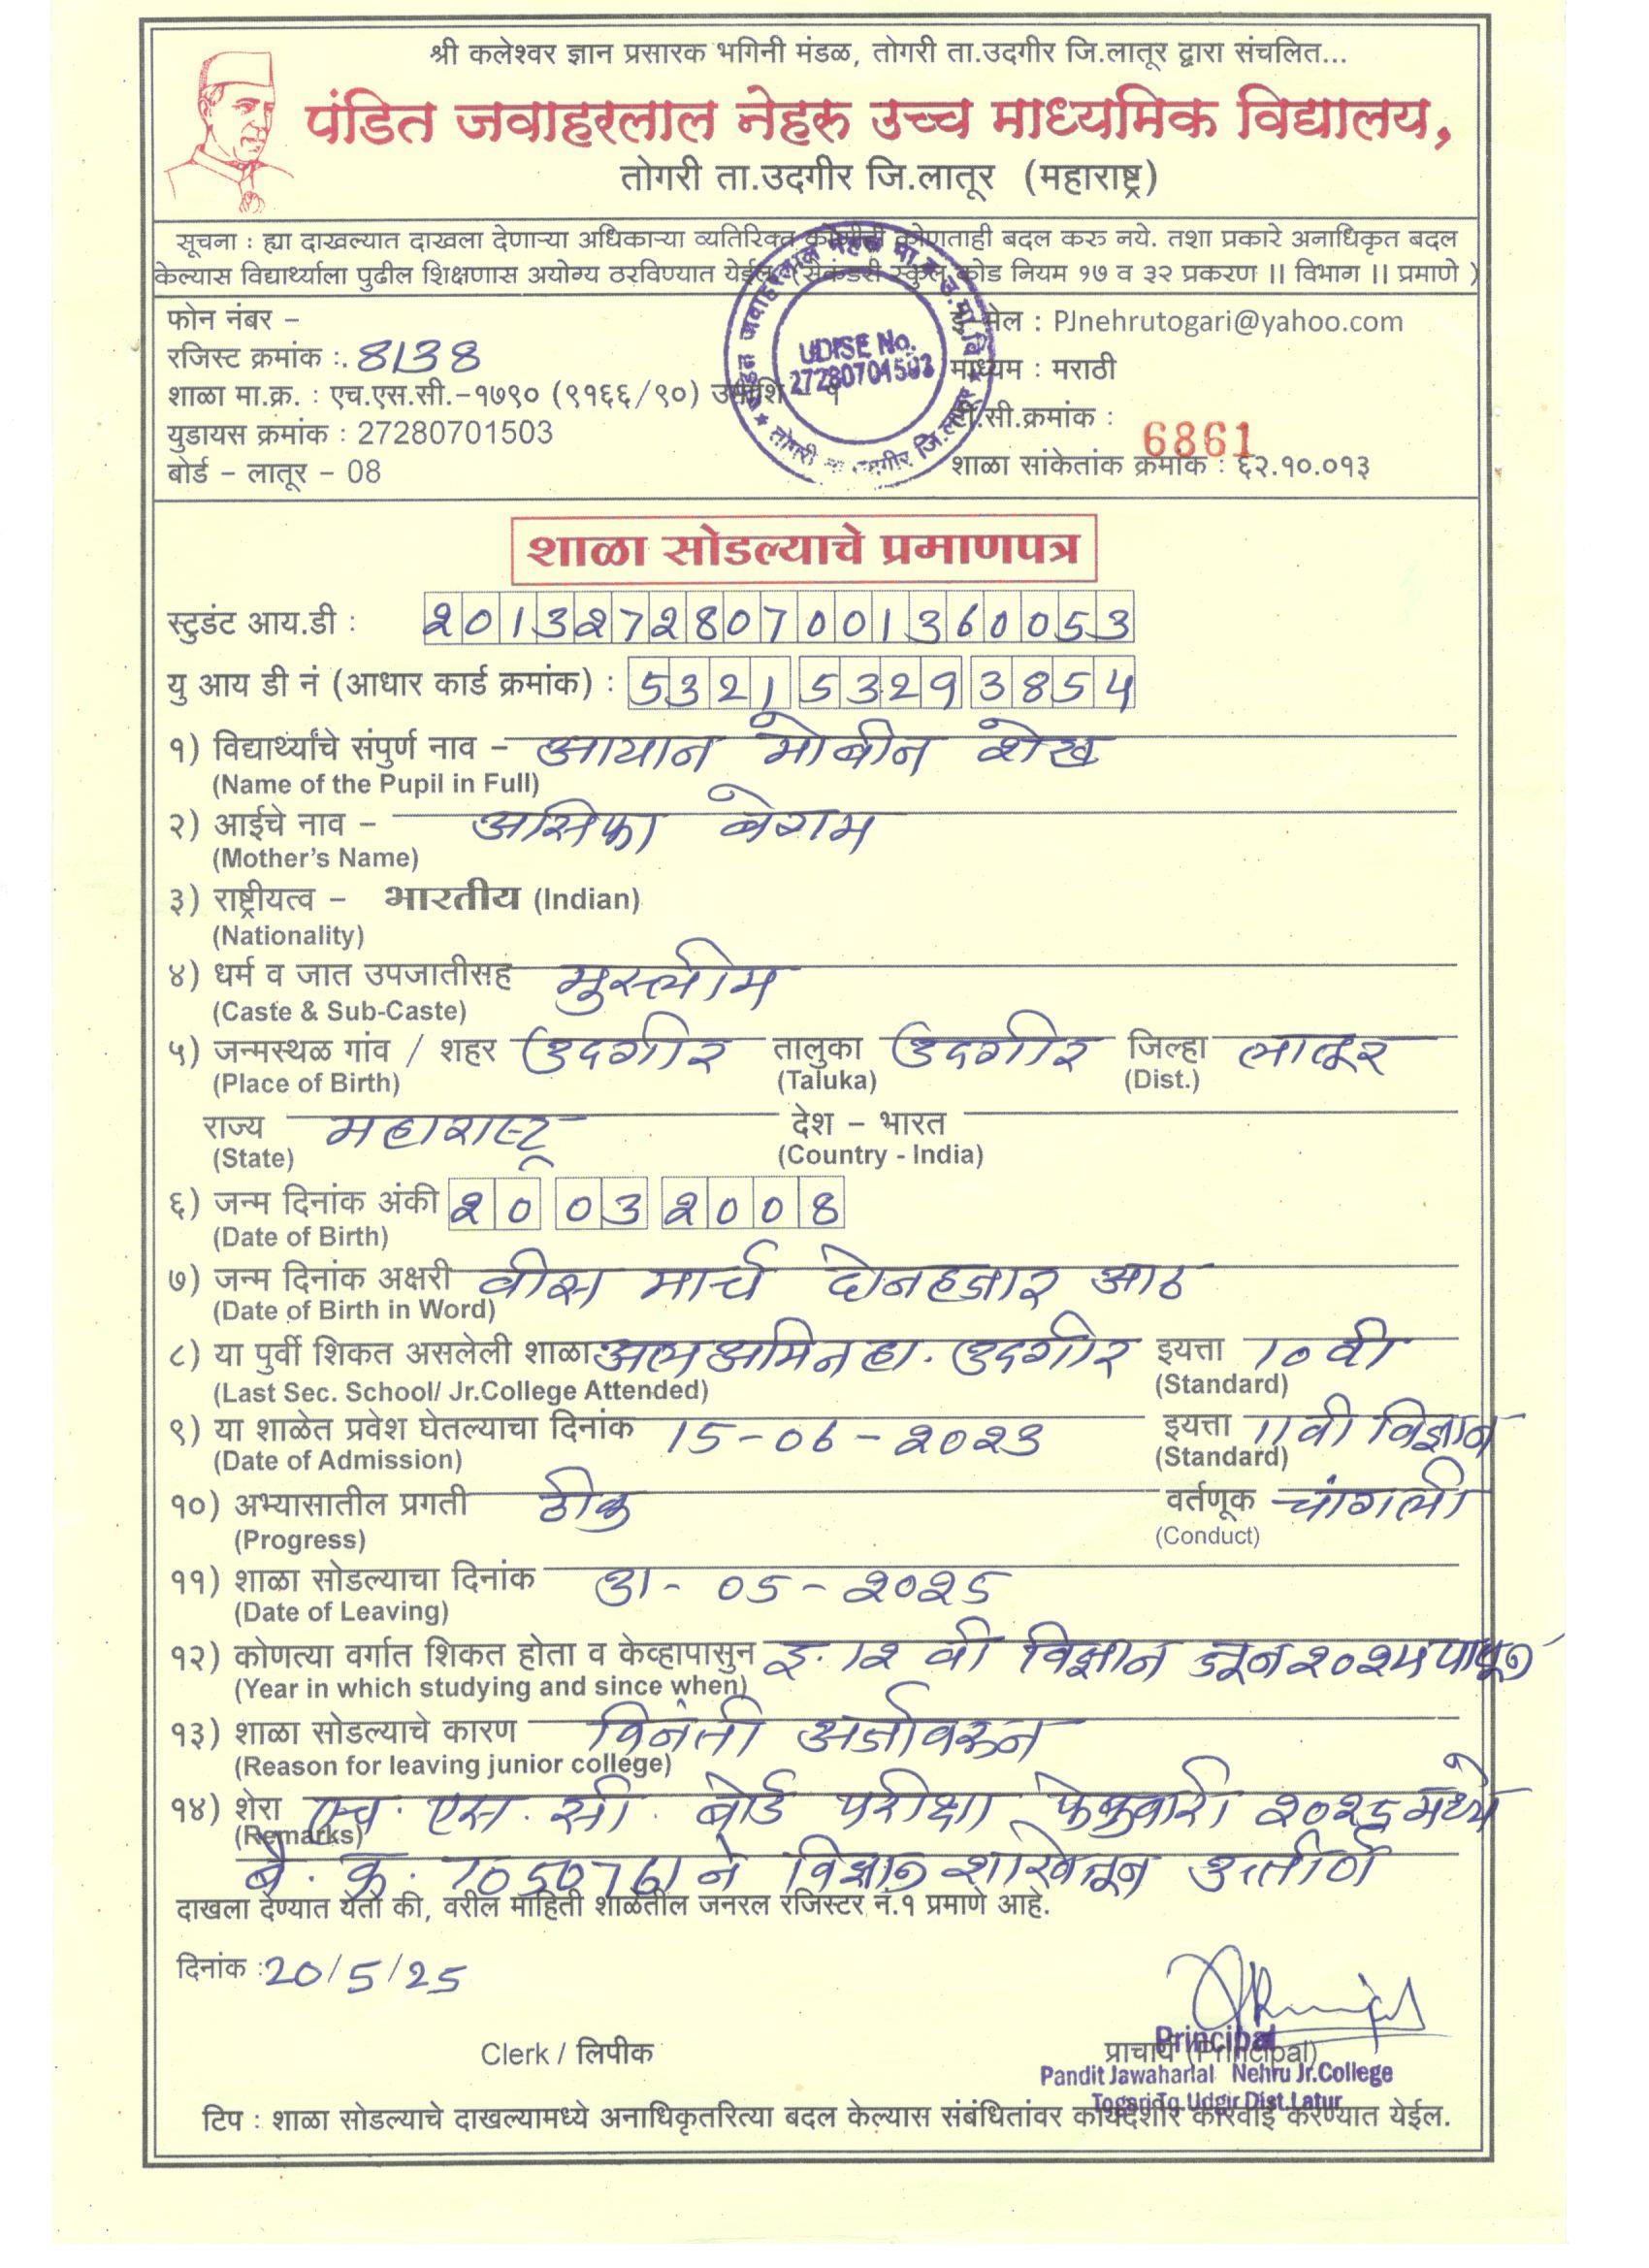 श्री कलेश्वर ज्ञान प्रसारक भगिनी मंडळ, तोगरी ता.उदगीर जि.लातूर द्वारा संचलित...
पंडित जवाहरलाल नेहरु उच्च माध्यमिक विद्यालय,
तोगरी ता.उदगीर जि.लातूर (महाराष्ट्र)
सूचना : ह्या दाखल्यात दाखला देणाऱ्या अधिकाऱ्या व्यतिरिक्त कोणीही कोणताही बदल करु नये. तशा प्रकारे अनाधिकृत बदल
केल्यास विद्यार्थ्याला पुढील शिक्षणास अयोग्य ठरविण्यात येईल. (सेकंडरी स्कुल कोड नियम १७ व ३२ प्रकरण II विभाग II प्रमाणे )
फोन नंबर –
ई-मेल : PJnehrutogari@yahoo.com
रजिस्ट क्रमांक :. 8138
माध्यम : मराठी
शाळा मा.क्र. : एच.एस.सी.-१७९० (९१६६/९०) उमाशि - १
टी.सी.क्रमांक : 6861
युडायस क्रमांक : 27280701503
शाळा सांकेतांक क्रमांक : ६२.१०.०१३
बोर्ड – लातूर – 08
UDISE No.
27280701503
शाळा सोडल्याचे प्रमाणपत्र
स्टुडंट आय.डी : 2013272807001360053
यु आय डी नं (आधार कार्ड क्रमांक) : 5321 5329 3854
१) विद्यार्थ्यांचे संपुर्ण नाव – आयान मोबीन शेख
(Name of the Pupil in Full)
२) आईचे नाव – असिफा बेगम
(Mother's Name)
३) राष्ट्रीयत्व – भारतीय (Indian)
(Nationality)
४) धर्म व जात उपजातीसह मुस्लीम
(Caste & Sub-Caste)
५) जन्मस्थळ गांव / शहर उदगीर तालुका उदगीर जिल्हा लातूर
(Place of Birth) (Taluka) (Dist.)
राज्य महाराष्ट्र देश – भारत
(State) (Country - India)
६) जन्म दिनांक अंकी 20 03 2008
(Date of Birth)
७) जन्म दिनांक अक्षरी वीस मार्च दोनहजार आठ
(Date of Birth in Word)
८) या पुर्वी शिकत असलेली शाळा अलअमिन हा. उदगीर इयत्ता 10 वी
(Last Sec. School/ Jr.College Attended) (Standard)
९) या शाळेत प्रवेश घेतल्याचा दिनांक 15-06-2023 इयत्ता 11 वी विज्ञान
(Date of Admission) (Standard)
१०) अभ्यासातील प्रगती ठीक वर्तणूक चांगली
(Progress) (Conduct)
११) शाळा सोडल्याचा दिनांक 31-05-2025
(Date of Leaving)
१२) कोणत्या वर्गात शिकत होता व केव्हापासुन इ. 12 वी विज्ञान जून 2024 पासून
(Year in which studying and since when)
१३) शाळा सोडल्याचे कारण विनंती अर्जावरून
(Reason for leaving junior college)
१४) शेरा एच. एस. सी. बोर्ड परीक्षा फेब्रुवारी 2025 मध्ये
(Remarks)
बै. क्र. T050761 ने विज्ञान शाखेतून उत्तीर्ण
दाखला देण्यात येतो की, वरील माहिती शाळेतील जनरल रजिस्टर नं.१ प्रमाणे आहे.
दिनांक : 20/5/25
Clerk / लिपीक
Principal
प्राचार्य (Principal)
Pandit Jawaharlal Nehru Jr.College
Togari Tq Udgir Dist.Latur
टिप : शाळा सोडल्याचे दाखल्यामध्ये अनाधिकृतरित्या बदल केल्यास संबंधितांवर कायदेशीर कारवाई करण्यात येईल.